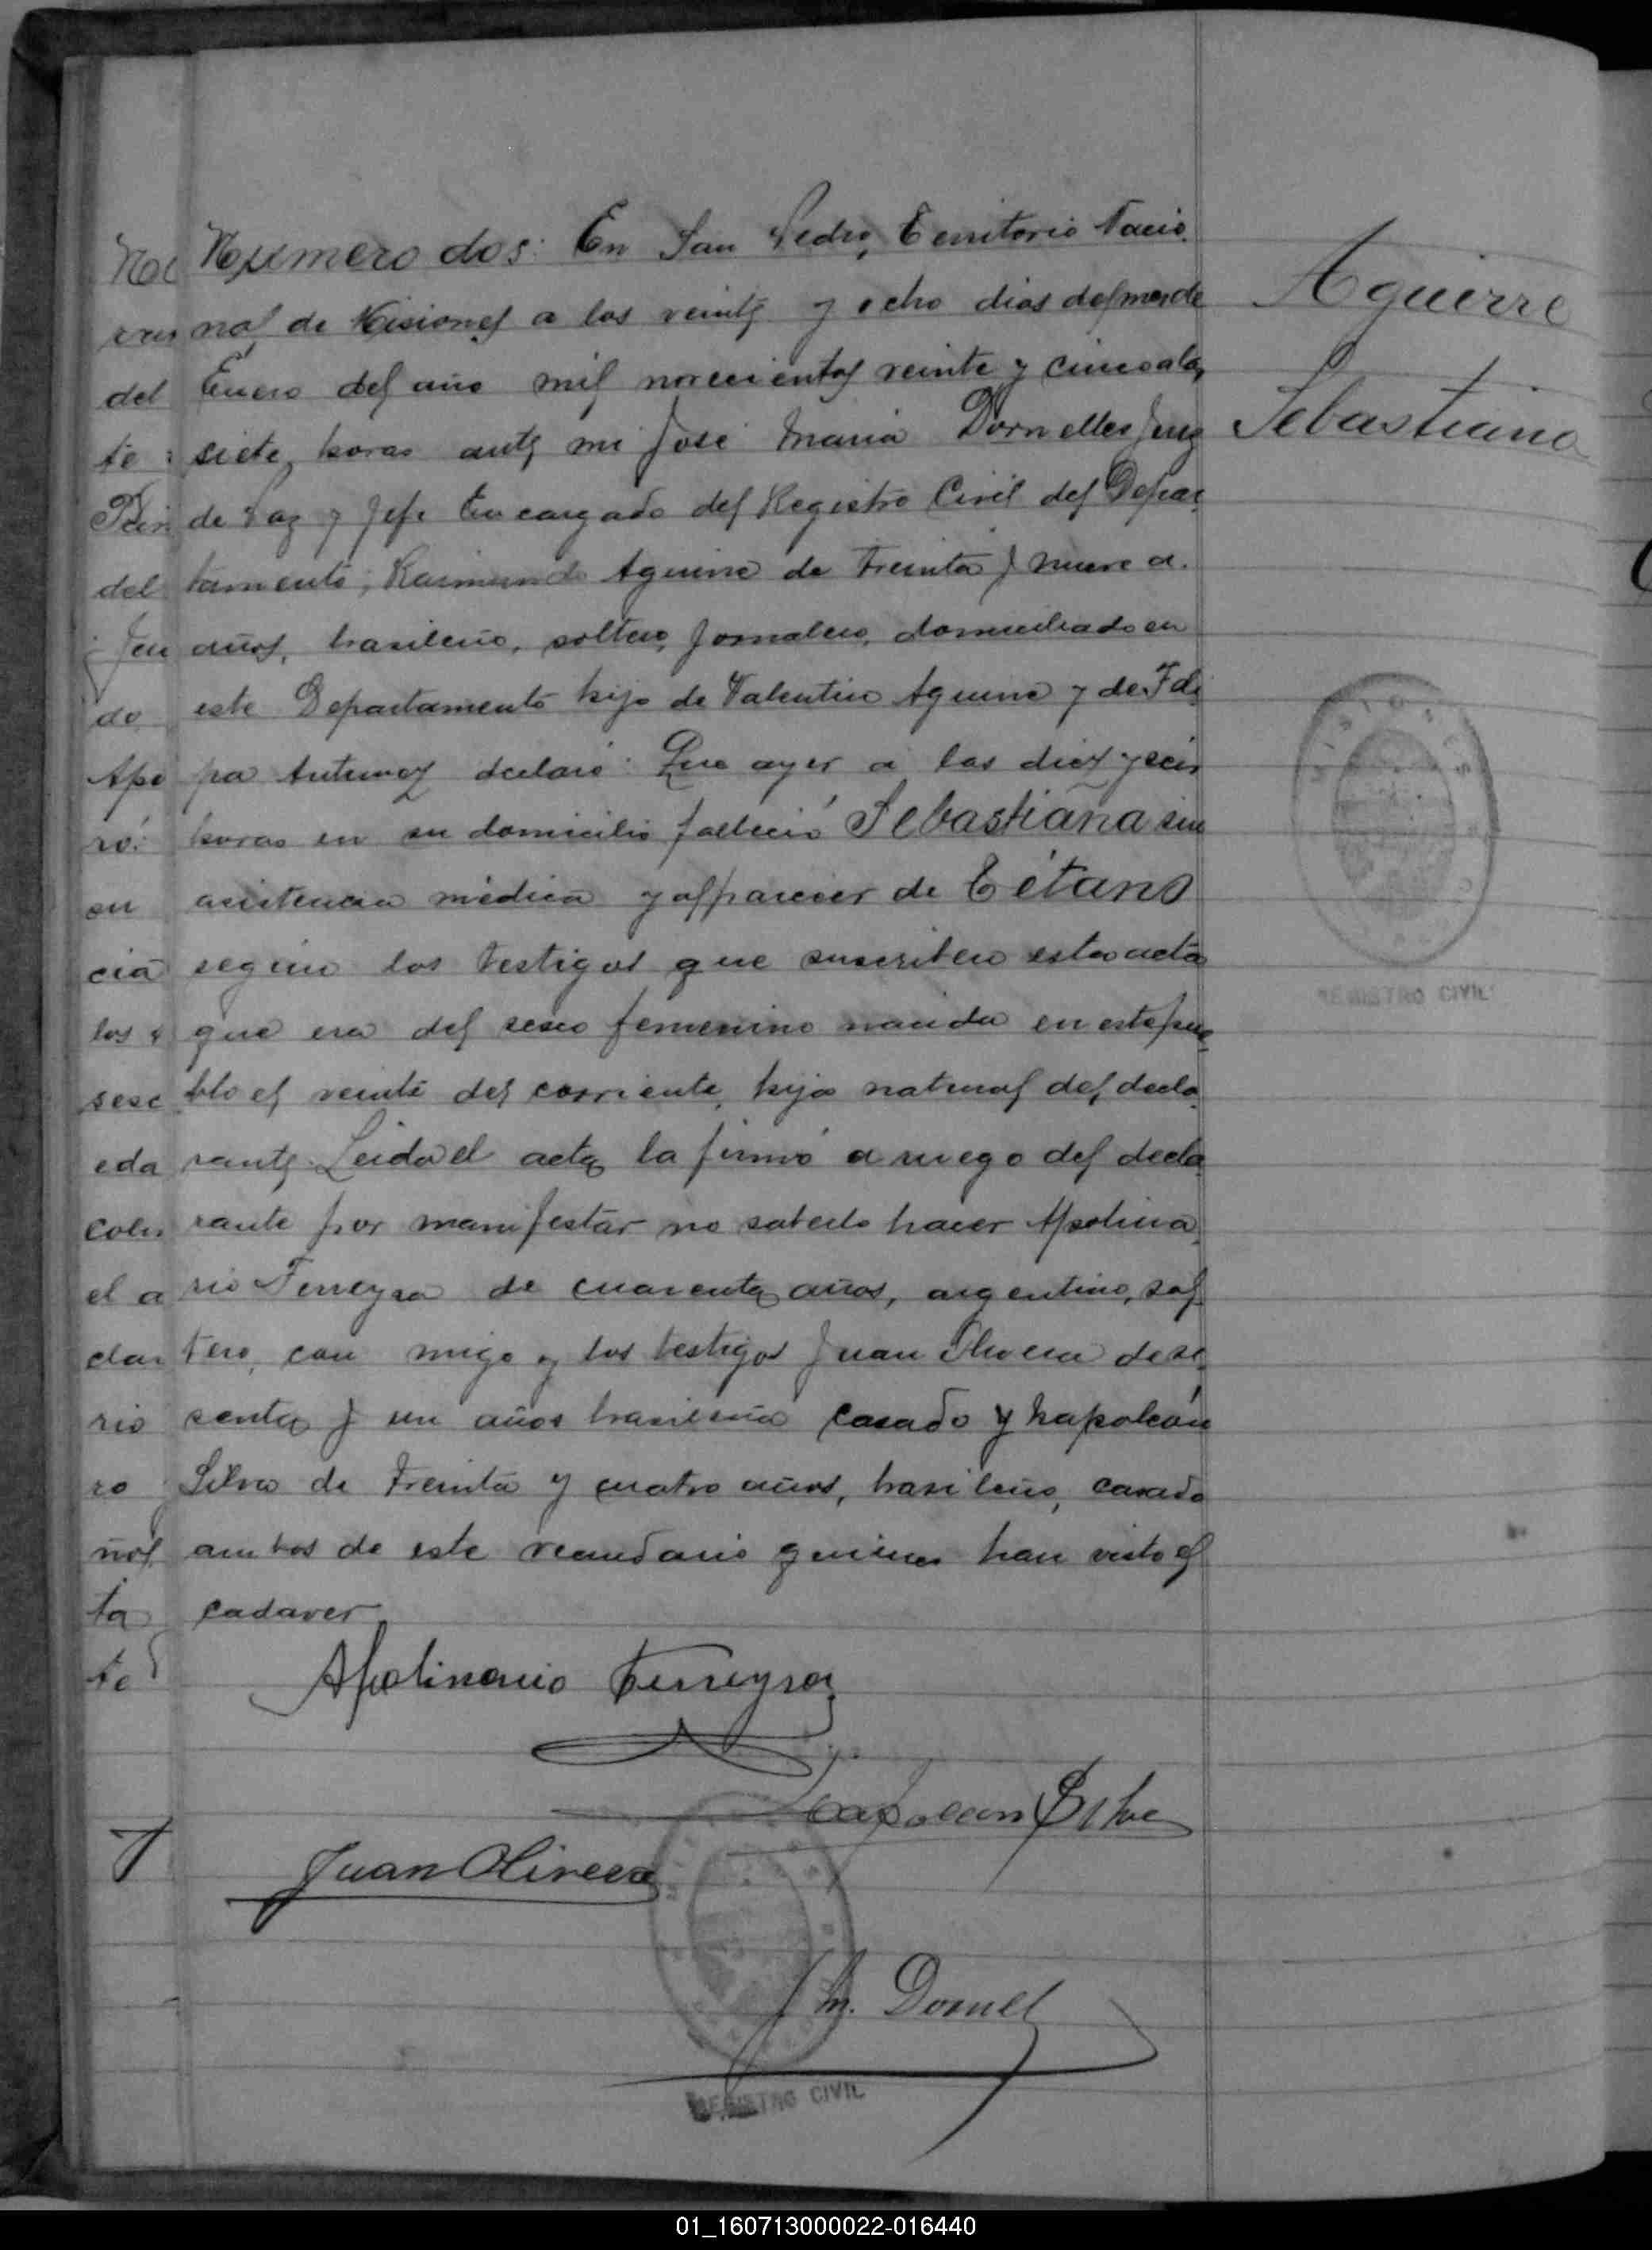 Numero dos: En San Pedro, Territorio Nacio
nal de Misiones a los veinte y ocho dias del mes de
Enero del año mil novecientos veinte y cinco a las
siete horas ante mi José Maria Dornelles Juez
de Paz y Jefe Encargado del Registro Civil del Depar
tamento; Raimundo Aguirre de treinta y nueve a.
años, brasileño, soltero, jornalero, domiciliado en
este Departamento hijo de Valentin Aguirre y de
pa Antunez declaró: Que ayer a las diez y seis
horas en su domicilio falleció Sebastiana sin
asistencia médica y al parecer de Tétano
según los testigos que suscriben esta acta
que era del sexo femenino nacida en este pue
blo el veinte del corriente, hija natural del decla
rante. Leida el acta la firmó a ruego del decla
rante por manifestar no saberlo hacer Apolina
rio Ferreyra de cuarenta años, argentino, sol
tero, con migo y los testigos Juan Olivera de se
senta y un años brasileño casado y Napoleón
Silva de treinta y cuatro años, brasileño, casado
ambos de este vecindario quienes han visto el
cadaver
Aguirre
Sebastiana
MISIONES
REGISTRO CIVIL
Apolinario Ferreyra
Napoleon Silva
Juan Olivera
J. M. Dornel
REGISTRO CIVIL
del
del
do
en
cia
los
eda
el a
rio
ro
ta
te
01_160713000022-016440